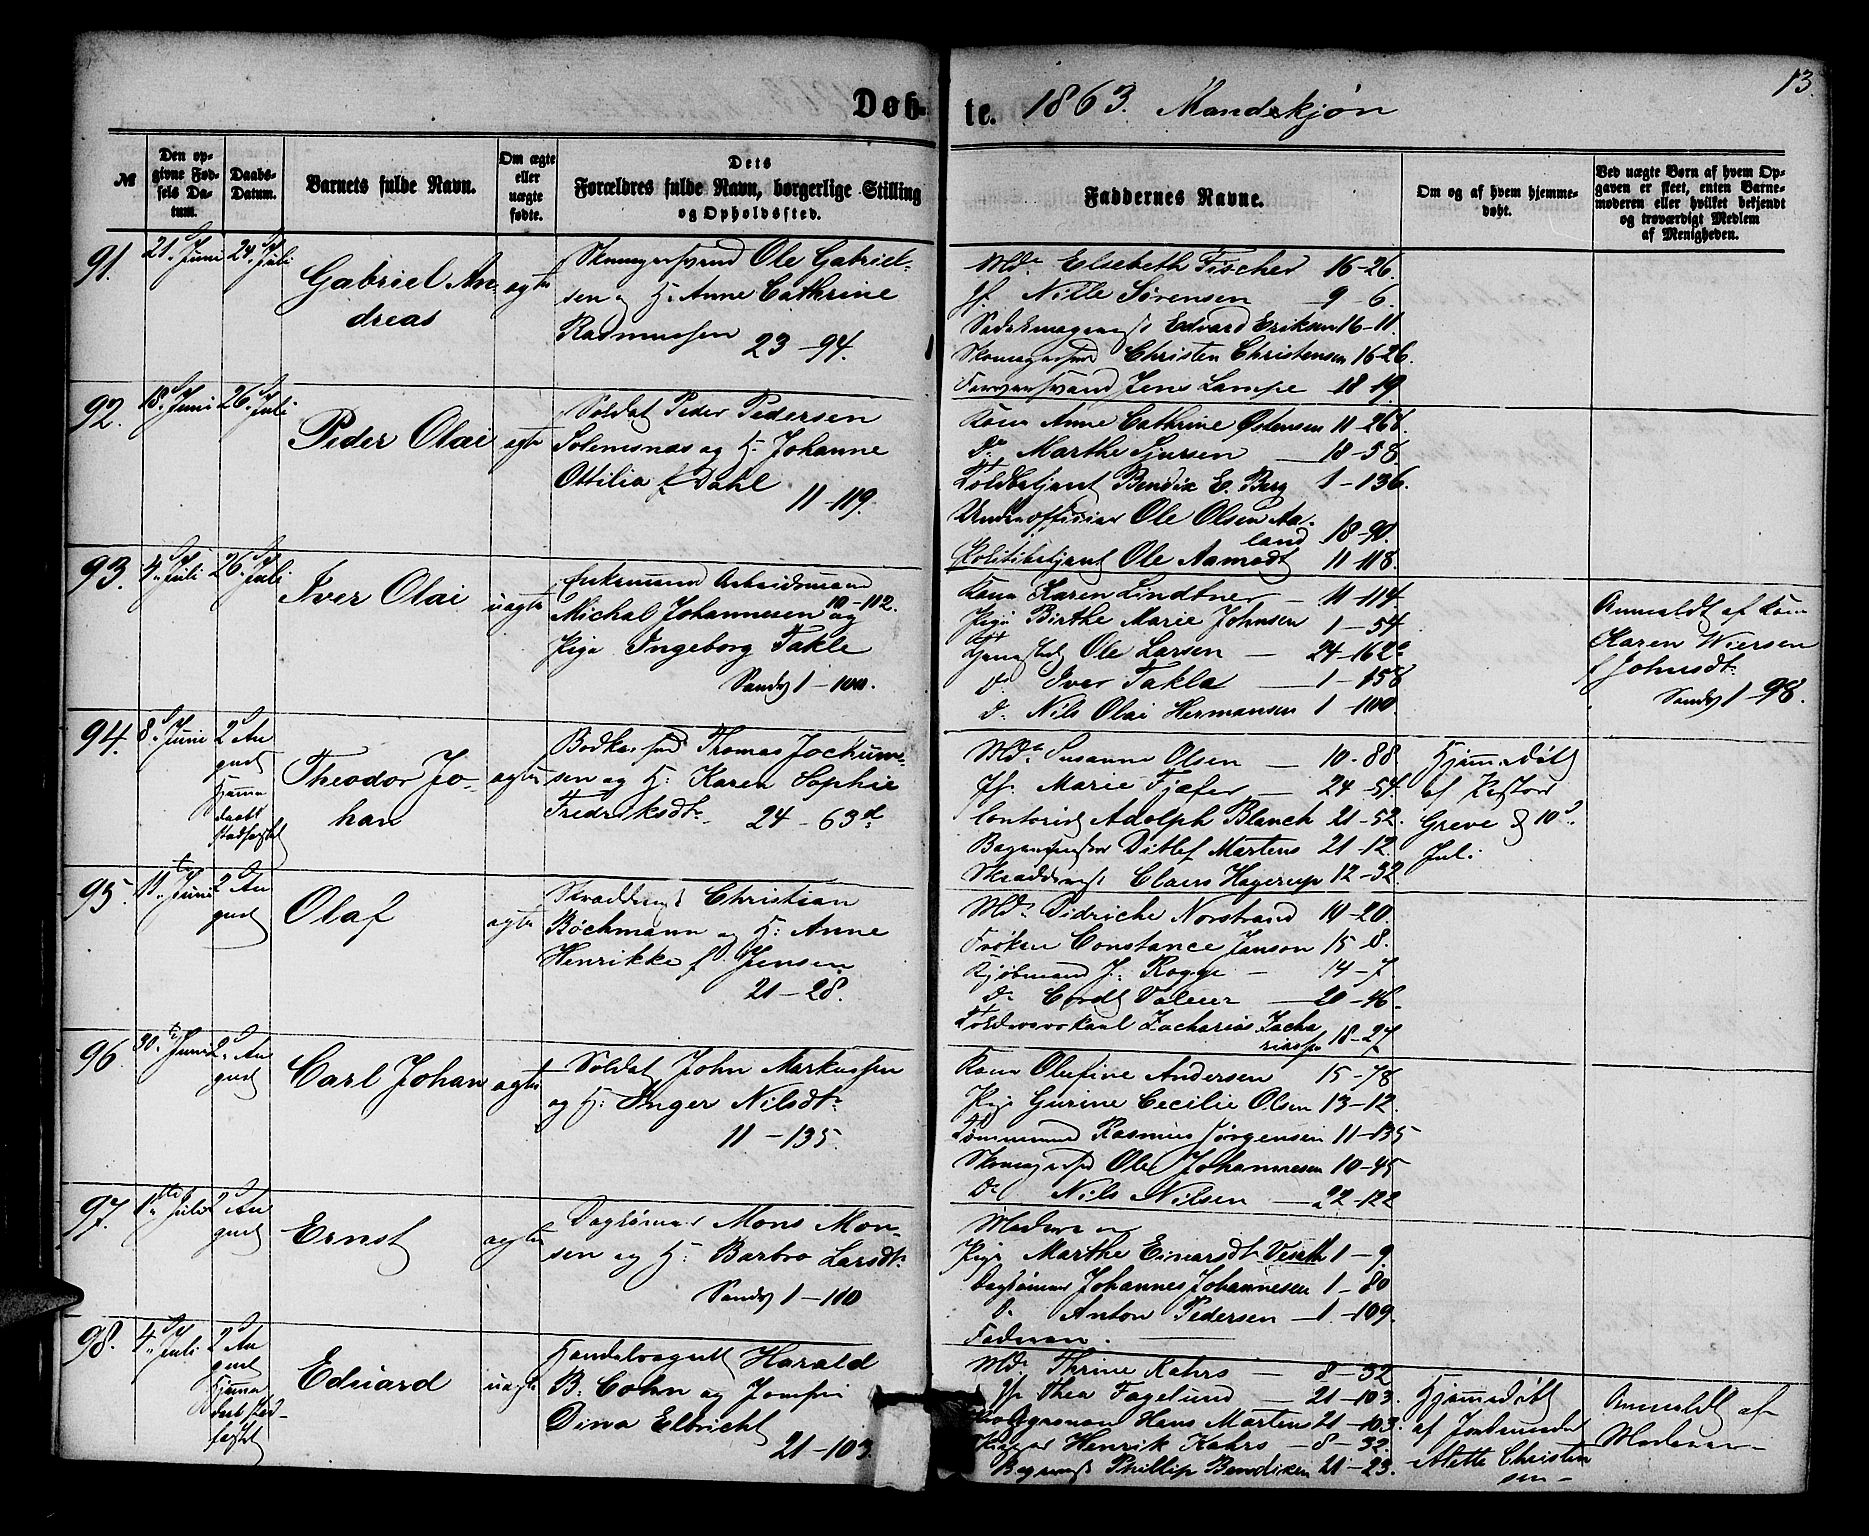 13.
Døb-te. 1863. Mandskjøn
№
Den opgivne Fødsels Datum.
Daabs-Datum.
Barnets fulde Navn.
Om ægte eller uægte fødte.
Dets Forældres fulde Navn, borgerlige Stilling og Opholdssted.
Faddernes Navne.
Om og af hvem hjemmedøbt.
Ved uægte Børn af hvem Opgaven er skeet, enten Barnemoderen eller hvilket bekjendt og troværdigt Medlem af Menigheden.
91.
21. Juni
24. Juli
Gabriel An-
dreas
ægte
Skomagersvend Ole Gabriel-
sen og H: Anne Cathrine
Rasmussen 23-94.
Md. Elsebeth Fischer 16-26.
Jf. Nille Sørensen 9-6.
Edvard Eriksen 16-11.
Skomagersvd Christen Christensen 16-26.
Farversvend Jens Lampe 18-19.
92.
18. Juni
26. Juli
Peder Olai
ægte
Soldat Peder Pedersen
Solemsnæs og H. Johanne
Ottilia f Dahl 11-119.
Kone Anne Cathrine Østensen 11-268.
Do Marthe Sjursen 18-58.
Toldbetjent Bendix E. Berg 1-136.
Underofficier Ole Olsen Aa-
land 18-90.
Politibetjent Ole Aamodt 11-118.
93.
4. Juli
26. Juli
Iver Olai
uægte
Enkemand Arbeidsmand
Michal Johannesen 10-112. og
Pige Ingeborg Takle
Sandv 1-100.
Kone Karen Lindtner 11-114
Pige Birthe Marie Johnsen 1-54
Ole Larsen 24-162
Do Iver Takle 1-158
Do Nils Olai Hermansen 1-100
Anmeldt af Kone
Karen Wiersen
f Johnsdt.
Sandv 1-98.
94.
8. Juni
2 Au
gust
Hjemme
daabt
stadfæstet
Theodor Jo-
han
ægte
Bødkersvd Thomas Jochum-
sen og H: Karen Sophie
Fredriksdt. 24-63d.
Md. Susanne Olsen 10-88
Jf. Marie Fjæfer 24-54.
Contorist Adolph Blanch 21-52.
Bagersvend Ditlef Martens 21-12.
Skræddersvd Claes Hagerup 12-32.
Hjemmedøbt
af Pastor
Greve d 10d.
Juli
95.
11. Juni
2 Au
gust
Olaf
ægte
Skræddersvd Christian
Böchmann og H: Anne
Henrikke f. Jensen
21-28.
Md. Didriche Norstrand 14-20.
Frøken Constance Janson 15-8.
Kjøbmand J: Rogge 14-7
Do Cordt Valeur 20-46.
Zacharias Zacha
riass. 18-27
96.
30. Juni
2. Au
gust
Carl Johan
ægte
Soldat John Markussen
og H: Inger Nilsdt.
11-135.
Kone Olufine Andersen 15-78
Pige Gurine Cecilie Olsen 13-12.
Tømmermd Rasmus Jørgensen 11-135
Skomagersvd Ole Johannesen 10-45
Do Nils Nilsen 22-122
97.
1. Juli
2 Au
gust
Ernst
ægte
Dagtømmer Mons Mon-
sen og H: Barbro Larsdt.
Sandv 1-110
Moderen
Pige Marthe Einarsdt. Veseth 1-9.
Johannes Johannesen 1-80
Do Anton Pedersen 1-109.
Faderen.
98.
4. Juli
2 Au
gust
Hjemme
døbt stad-
fæstet
Eduard
uægte
Handelsagent Harald
B. Cohn og Jomfru
Dina Elbricht
21-103
Md. Thrine Kahrs 8-32
Jf. Thea Fagelund 21-103.
Hans Martens 21-103.
Henrik Kahrs 8-32.
Phillip Bendixen 21-23.
Hjemmedøbt
af Jordemoder
Alette Christen
sen
Anmeldt af
Moderen